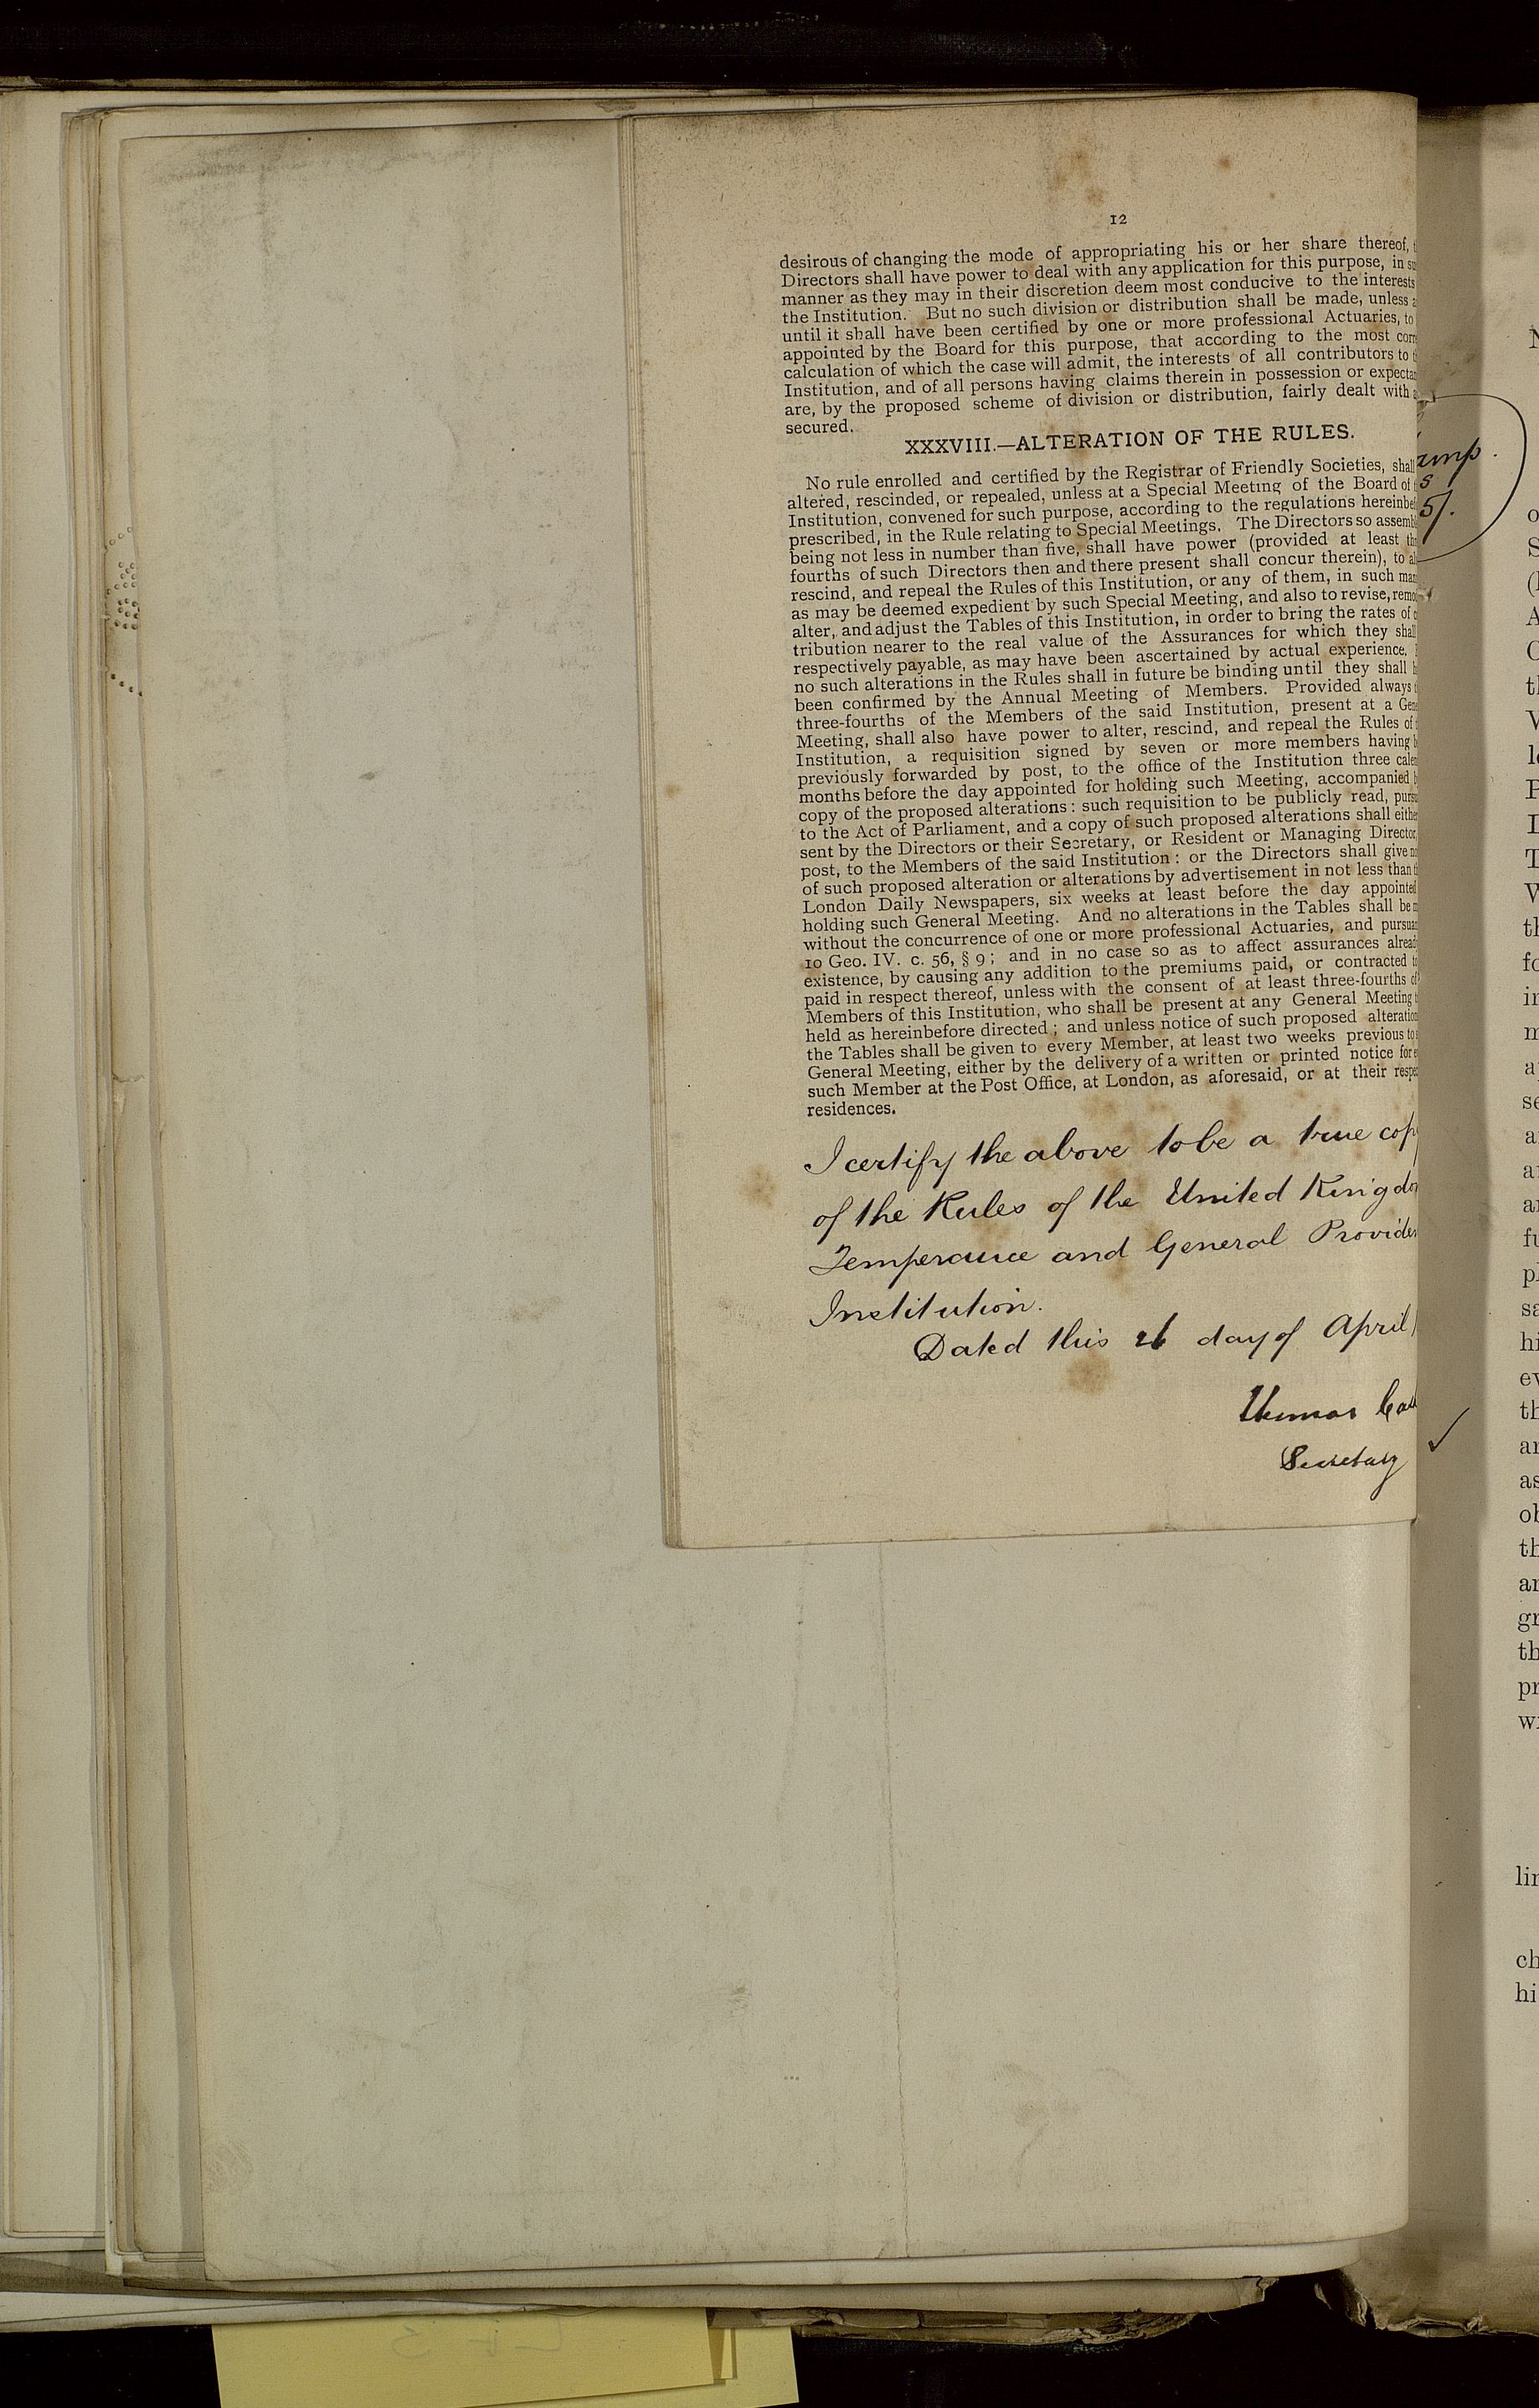 12
desirous of changing the mode of appropriating his or her share thereof,
Directors shall have power to deal with any application for this purpose, in
manner as they may in their discretion deem most conducive to the interests
the Institution. But no such division or distribution shall be made, unless
until it shall have been certified by one or more professional Actuaries, to
appointed by the Board for this purpose, that according to the most
calculation of which the case will admit, the interests of all contributors to
Institution, and of all persons having claims therein in possession or
are, by the proposed scheme of division or distribution, fairly dealt with
secured.
XXXVIII.—ALTERATION OF THE RULES.
No rule enrolled and certified by the Registrar of Friendly Societies, shall
altered, rescinded, or repealed, unless at a Special Meeting of the Board of
Institution, convened for such purpose, according to the regulations
prescribed, in the Rule relating to Special Meetings. The Directors so
being not less in number than five, shall have power (provided at least
fourths of such Directors then and there present shall concur therein), to
rescind, and repeal the Rules of this Institution, or any of them, in such
as may be deemed expedient by such Special Meeting, and also to revise,
alter, and adjust the Tables of this Institution, in order to bring the rates of
tribution nearer to the real value of the Assurances for which they shall
respectively payable, as may have been ascertained by actual experience.
no such alterations in the Rules shall in future be binding until they shall
been confirmed by the Annual Meeting of Members. Provided always
three-fourths of the Members of the said Institution, present at a
Meeting, shall also have power to alter, rescind, and repeal the Rules of
Institution, a requisition signed by seven or more members having
previously forwarded by post, to the office of the Institution three
months before the day appointed for holding such Meeting, accompanied
copy of the proposed alterations: such requisition to be publicly read,
to the Act of Parliament, and a copy of such proposed alterations shall
sent by the Directors or their Secretary, or Resident or Managing Director,
post, to the Members of the said Institution: or the Directors shall give
of such proposed alteration or alterations by advertisement in not less than
London Daily Newspapers, six weeks at least before the day appointed
holding such General Meeting. And no alterations in the Tables shall be
without the concurrence of one or more professional Actuaries, and
10 Geo. IV. c. 56, § 9; and in no case so as to affect assurances
existence, by causing any addition to the premiums paid, or contracted
paid in respect thereof, unless with the consent of at least three-fourths
Members of this Institution, who shall be present at any General Meeting
held as hereinbefore directed; and unless notice of such proposed
the Tables shall be given to every Member, at least two weeks previous to
General Meeting, either by the delivery of a written or printed notice for
such Member at the Post Office, at London, as aforesaid, or at their
residences.
I certify the above to be a true
of the Rules of the United
Temperance and General
Institution.
Dated this 26 day of April
Thomas
Secretary